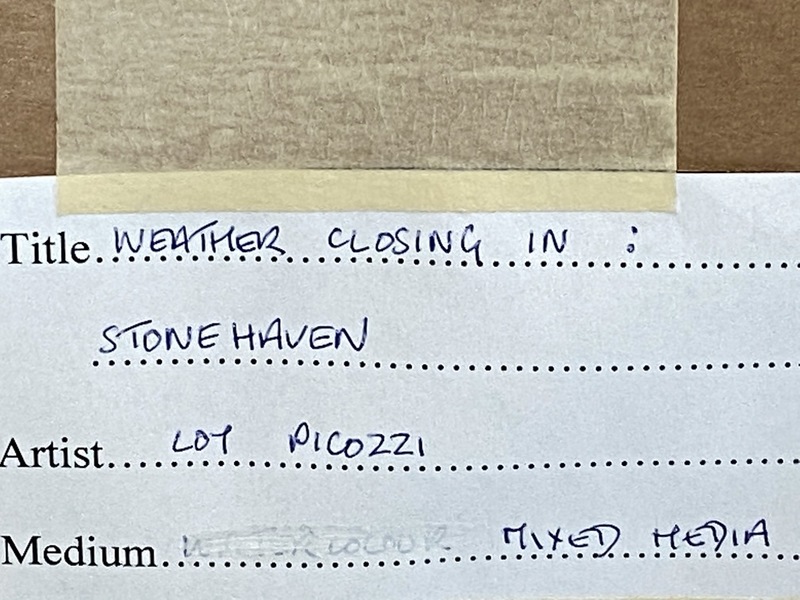 Title. WEATHER CLOSING IN :
STONEHAVEN
Artist. LOY PICOZZI
Medium. WATERCOLOUR MIXED MEDIA